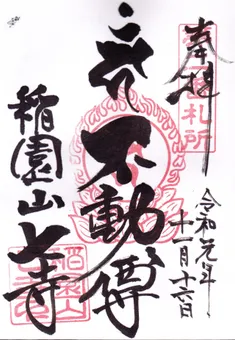 奉拝
札所
令和元年
十一月十六日
不動尊
稲園山七寺